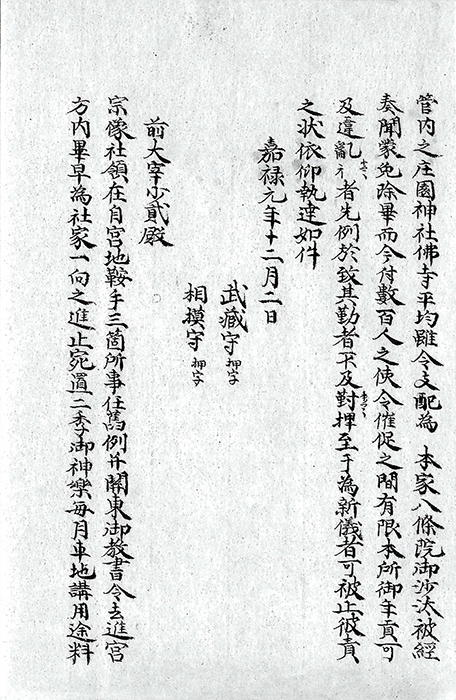 管内之庄園神社佛寺平均雖令支配為 本家八條院御沙汰被經
奏聞蒙免除畢而今付數百人之使令催促之間有限本所御年貢可
及違亂云々者先例於致其勤者不及對捍云々至于為新儀者可被止彼責
之状依仰執達如件
嘉禄元年十二月二日
武藏守 押字
相摸守 押字
前大宰少貳殿
宗像社領在自宮地鞍手三箇所事任舊例并關東御教書令去進宮
方内畢早為社家一向之進止宛置二季御神樂每月車地講用途料